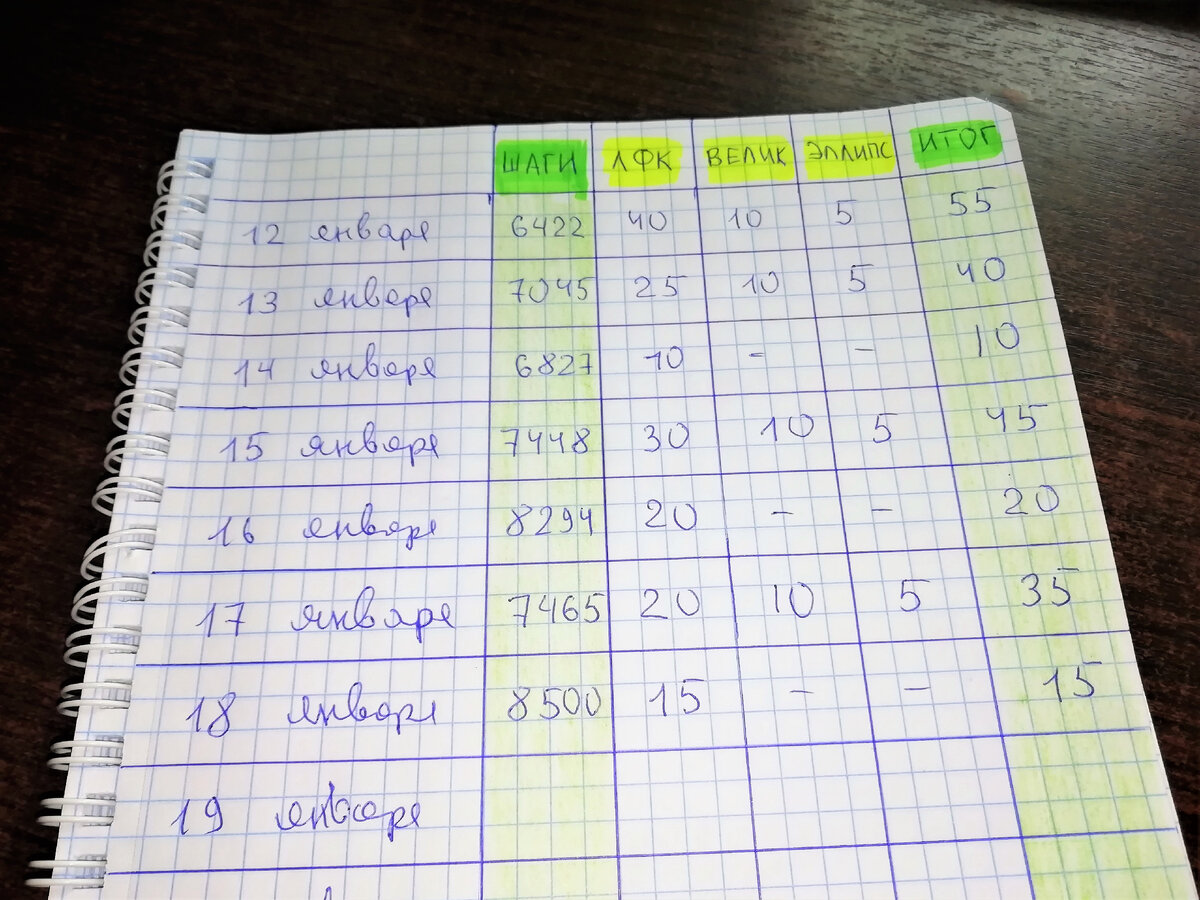 ШАГИ ЛФК ВЕЛИК ЭЛЛИПС ИТОГ
12 января 6422 40 10 5 55
13 января 7045 25 10 5 40
14 января 6827 10 - - 10
15 января 7448 30 10 5 45
16 января 8294 20 - - 20
17 января 7465 20 10 5 35
18 января 8500 15 - - 15
19 января